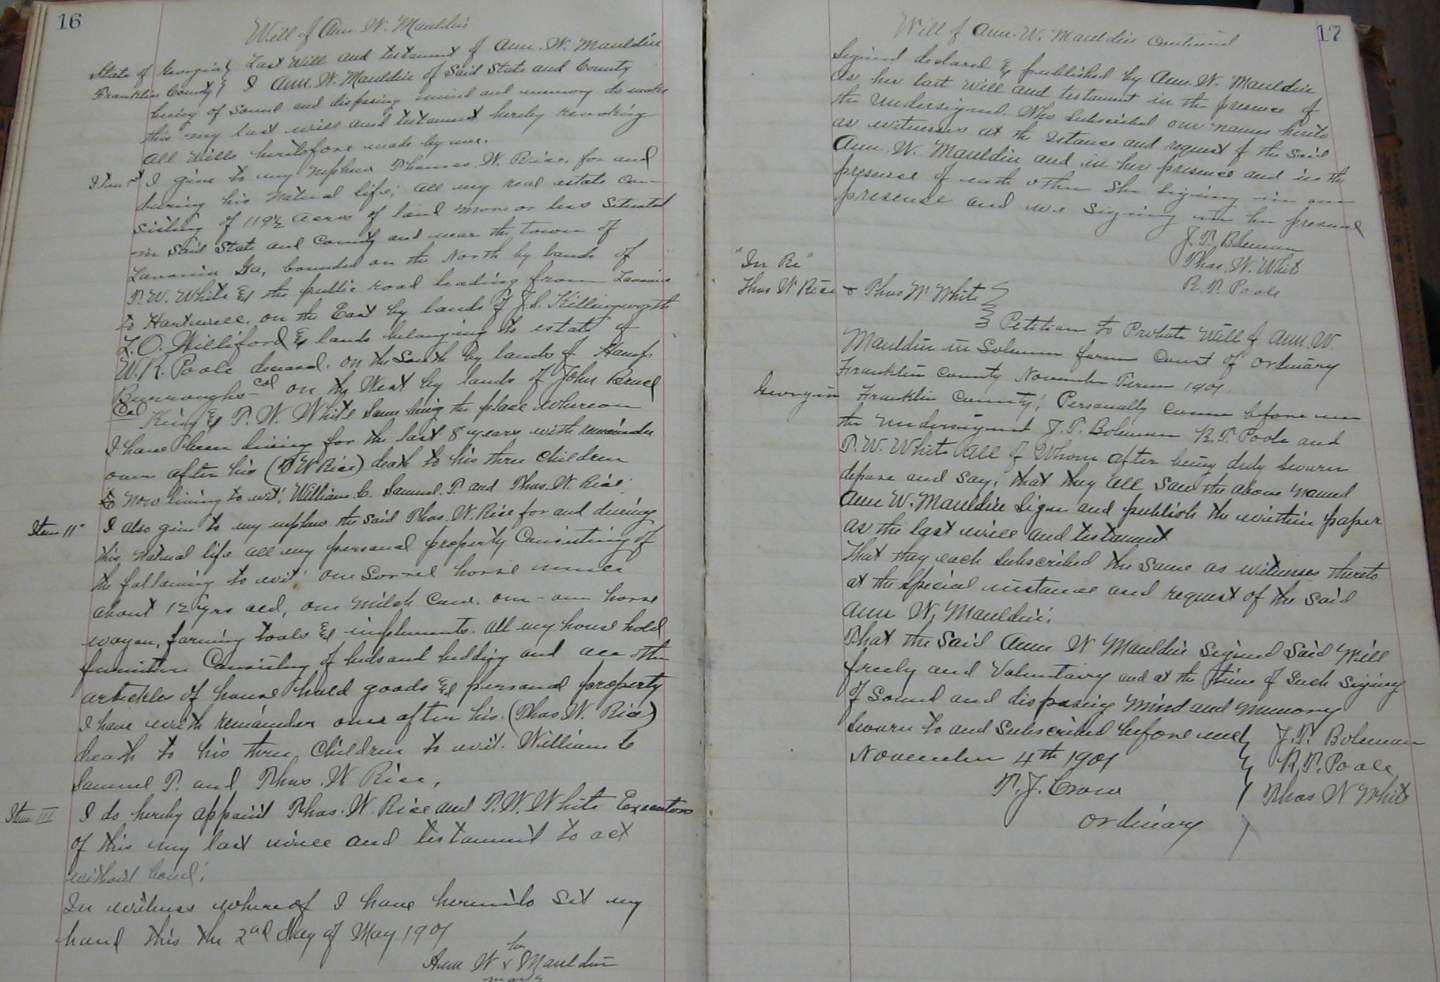 16
Will of Ann. W. Mauldin
State of Georgia } Last Will and testament of Ann. W. Mauldin
Franklin County } I Ann. W. Mauldin of Said State and County
being of Sound and disposing mind and memory do make
this my last will and testament hereby revoking
all Wills heretofore made by me.
Item 1st I give to my nephew Thomas. W. Rice. for and
during his Natural life; all my real estate con-
sisting of 119½ acres of land more or less Situated
in Said State and County and near the town of
Lavonia Ga, bounded on the North by lands of
T. W. White & the public road leading from Lavonia
to Hartwell. on the East by lands of J. L. Killingsworth
L. O. Williford & lands belonging to estate of
W. R. Poole deceased. on the South by lands of
Burroughs Col on the West by lands of John
Col King & T. W. White Same being the place whereon
I have been living for the last 8 years with remainder
over after his (T W Rice) death to his three Children
now living to wit; William C. Samuel. T. and Thos. W. Rice;
Item 11" I also give to my nephew the said Thos. W. Rice for and during
his natural life all my personal property Consisting of
the following to wit: one Sorrel horse mule
about 12 yrs old, one milch Cow. one-one horse
wagon, farming tools & implements. all my house hold
furniture Consisting of beds and bedding and all other
artickles of house hold goods & personal property
I have with remainder over after his. (Thos. W. Rice)
death to his three Children to wit. William C
Samuel T. and Thos. W Rice,
Item III I do hereby appoint Thos. W. Rice and T. W. White Executors
of this my last will and testament to act
without bond;
In witness whereof I have hereunto Set my
hand this the 2nd day of May 1901
her
Ann W x Mauldin
mark
17
Will of Ann. W. Mauldin Continued
Signed declared & published by Ann. W. Mauldin
As her last will and testament in the presence of
the undersigned. Who Subscribed our names hereto
as witnesses at the instance and request of the Said
Ann W. Mauldin and in her presence and in the
presence of each other She Signing in our
presence and we Signing in her presence
J. T. Boleman
Thos. W. White
R. T. Poole
"In Re"
Thos W Rice & Thos W White
Petition to Probate Will of Ann. W.
Mauldin in Solemn form Court of Ordinary
Franklin County November Term 1901.
Georgia Franklin County; Personally came before me
the undersigned J. T. Boleman R. T. Poole and
T. W. White all of Whom after being duly Sworn
depose and Say; that they all Saw the above named
Ann W. Mauldin Sign and publish the within paper
as the last will and testament
That they each Subscribed the Same as witnesses thereto
at the special instance and request of the Said
Ann W. Mauldin;
That the Said Ann W Mauldin Signed Said Will
freely and Voluntary and at the time of Such Signing
of Sound and disposing Mind and Memory
Sworn to and Subscribed before me } J. T. Boleman
November 4th 1901 R. T. Poole
T. J. Crow Thos W White
Ordinary